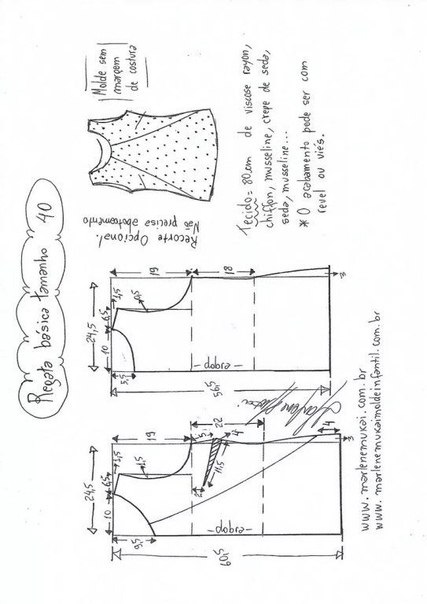 Regata básica tamanho 40
Molde sem
margem
de costura
Recorte Opcional.
Não precisa abotoamento
Tecido = 80cm de viscose rayon,
chiffon, musseline, crepe de seda,
seda, musseline...
* O acabamento pode ser com
revel ou viés.
24,5
10
6,5
1,5
19
18
5,5
-dobra-
56,5
24,5
10
6,5
1,5
1,5
19
22
11,5
4
9,5
-dobra-
60,5
www.marlenemukai.com.br
www.marlenemukaimoldeinfantil.com.br